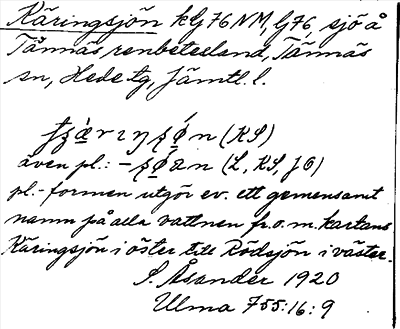 Käringsjön kbl 76 NM, bl 76, sjö å
Tännäs renbetesland, Tännäs
sn, Hede tg, Jämtl. l.
(KS)
även pl.: (L, KS, JÖ)
pl.-formen utgör ev. ett gemensamt
namn på alla vattnen fr. o. m. kartans
Käringsjön i öster till Rödsjön i väster.
S. Åsander 1920
Ulma 755:16:9